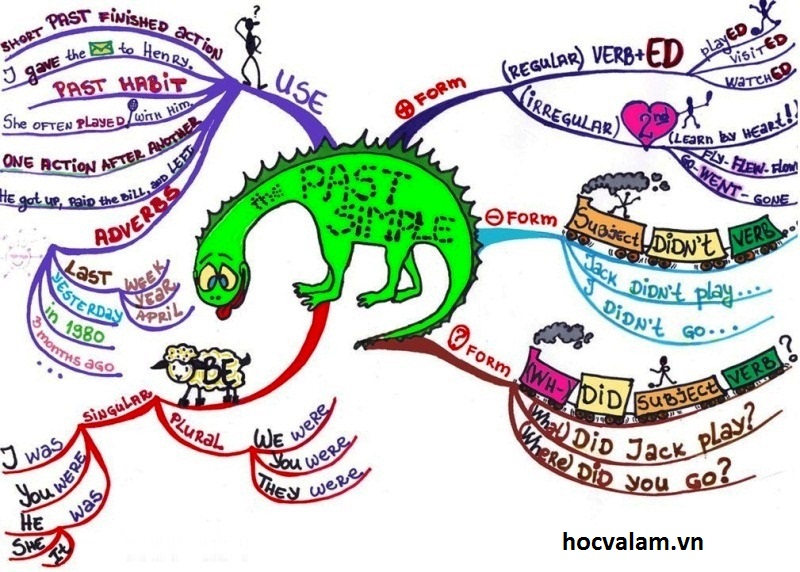 the PAST SIMPLE
USE
SHORT PAST FINISHED ACTION
I gave the to Henry.
PAST HABIT
She OFTEN PLAYED WITH HIM.
ONE ACTION AFTER ANOTHER
HE got up, paid the bill, and left
ADVERBS
LAST
WEEK
YEAR
APRIL
YESTERDAY
in 1980
3 MONTHS AGO
...
?
+ FORM
(REGULAR) VERB+ED
playED
visitED
watchED
(IRREGULAR) 2nd
(LEARN BY HEART!!)
FLY-FLEW-FLOWN
GO-WENT-GONE
- FORM
SUBJECT DIDN'T VERB
JACK DIDN'T PLAY...
I DIDN'T GO...
? FORM
WH- DID SUBJECT VERB ?
(What) DID JACK PLAY?
(Where) DID YOU GO?
BE
SINGULAR
I WAS
YOU WERE
HE WAS
SHE
It
PLURAL
WE WERE
YOU WERE
THEY WERE
hocvalam.vn